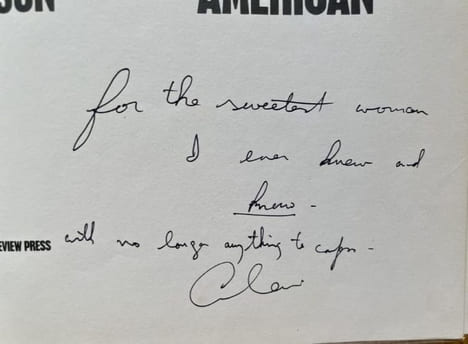 SON AMERICAN
for the sweetest woman
I ever knew and
know -
EVIEW PRESS with no longer anything to